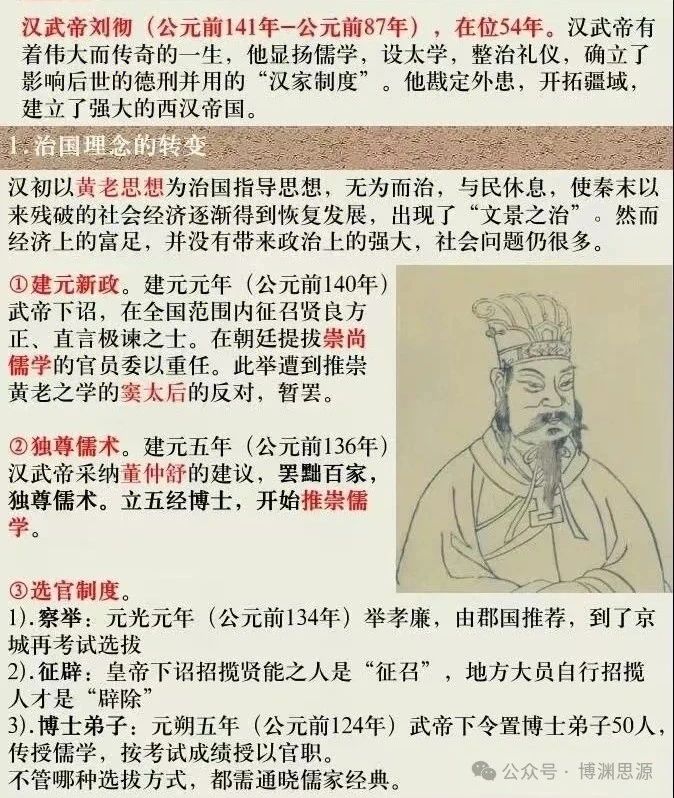 汉武帝刘彻（公元前141年—公元前87年），在位54年。汉武帝有
着伟大而传奇的一生，他显扬儒学，设太学，整治礼仪，确立了
影响后世的德刑并用的“汉家制度”。他戡定外患，开拓疆域，
建立了强大的西汉帝国。
1.治国理念的转变
汉初以黄老思想为治国指导思想，无为而治，与民休息，使秦末以
来残破的社会经济逐渐得到恢复发展，出现了“文景之治”。然而
经济上的富足，并没有带来政治上的强大，社会问题仍很多。
①建元新政。建元元年（公元前140年）
武帝下诏，在全国范围内征召贤良方
正、直言极谏之士。在朝廷提拔崇尚
儒学的官员委以重任。此举遭到推崇
黄老之学的窦太后的反对，暂罢。
②独尊儒术。建元五年（公元前136年）
汉武帝采纳董仲舒的建议，罢黜百家，
独尊儒术。立五经博士，开始推崇儒
学。
③选官制度。
1).察举：元光元年（公元前134年）举孝廉，由郡国推荐，到了京
城再考试选拔
2).征辟：皇帝下诏招揽贤能之人是“征召”，地方大员自行招揽
人才是“辟除”
3).博士弟子：元朔五年（公元前124年）武帝下令置博士弟子50人，
传授儒学，按考试成绩授以官职。
不管哪种选拔方式，都需通晓儒家经典。
公众号·博渊思源